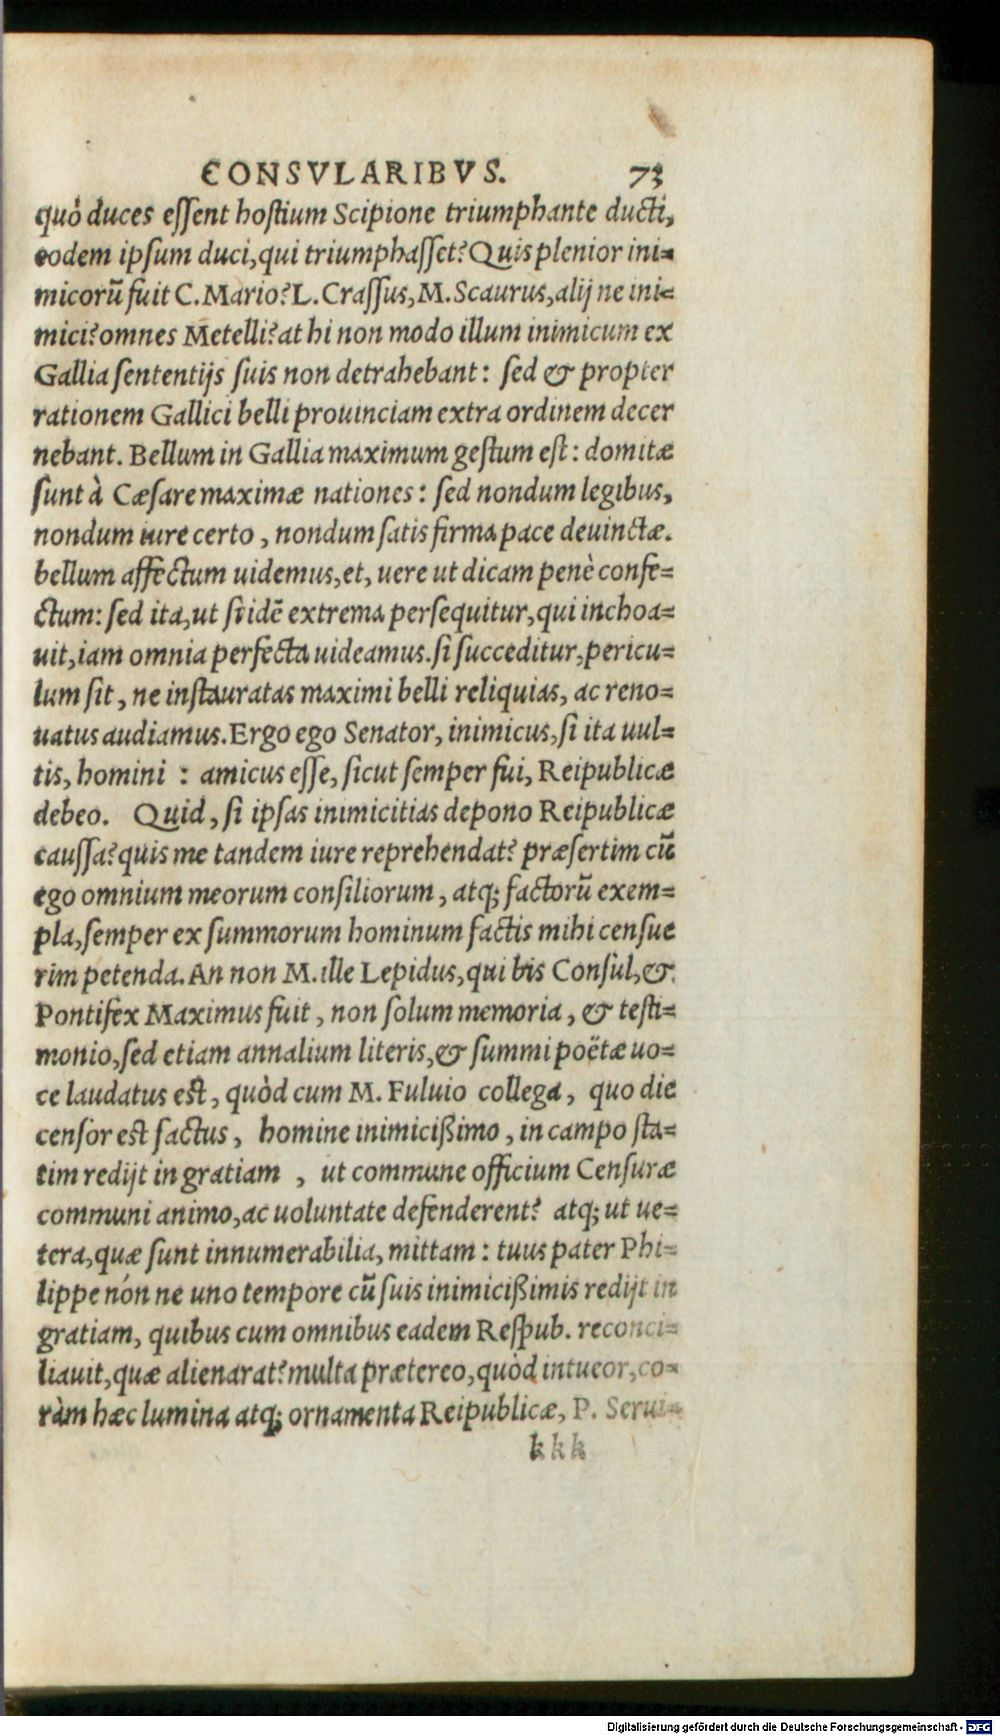 CONSVLARIBVS. 73
quò duces essent hostium Scipione triumphante ducti,
eodem ipsum duci, qui triumphasset? Quis plenior ini=
micorū fuit C. Mario? L. Crassus, M. Scaurus, alij ne ini=
mici? omnes Metelli? at hi non modo illum inimicum ex
Gallia sententijs suis non detrahebant: sed & propter
rationem Gallici belli prouinciam extra ordinem decer
nebant. Bellum in Gallia maximum gestum est: domitæ
sunt à Cæsare maximæ nationes: sed nondum legibus,
nondum iure certo, nondum satis firma pace deuinctæ.
bellum affectum uidemus, et, uere ut dicam penè confe=
ctum: sed ita, ut si idē extrema persequitur, qui inchoa=
uit, iam omnia perfecta uideamus. si succeditur, pericu=
lum sit, ne instauratas maximi belli reliquias, ac reno=
uatus audiamus. Ergo ego Senator, inimicus, si ita uul=
tis, homini : amicus esse, sicut semper fui, Reipublicæ
debeo. Quid, si ipsas inimicitias depono Reipublicæ
caussa? quis me tandem iure reprehendat? præsertim cū
ego omnium meorum consiliorum, atq; factorū exem=
pla, semper ex summorum hominum factis mihi censue
rim petenda. An non M. ille Lepidus, qui bis Consul, &
Pontifex Maximus fuit, non solum memoria, & testi=
monio, sed etiam annalium literis, & summi poëtæ uo=
ce laudatus est, quòd cum M. Fuluio collega, quo die
censor est factus, homine inimicißimo, in campo sta=
tim redijt in gratiam , ut commune officium Censuræ
communi animo, ac uoluntate defenderent? atq; ut ue=
tera, quæ sunt innumerabilia, mittam: tuus pater Phi=
lippe nón ne uno tempore cū suis inimicißimis redijt in
gratiam, quibus cum omnibus eadem Respub. reconci=
liauit, quæ alienarat? multa prætereo, quòd intueor, co=
ràm hæc lumina atq; ornamenta Reipublicæ, P. Serui=
kkk
Digitalisierung gefördert durch die Deutsche Forschungsgemeinschaft - DFG